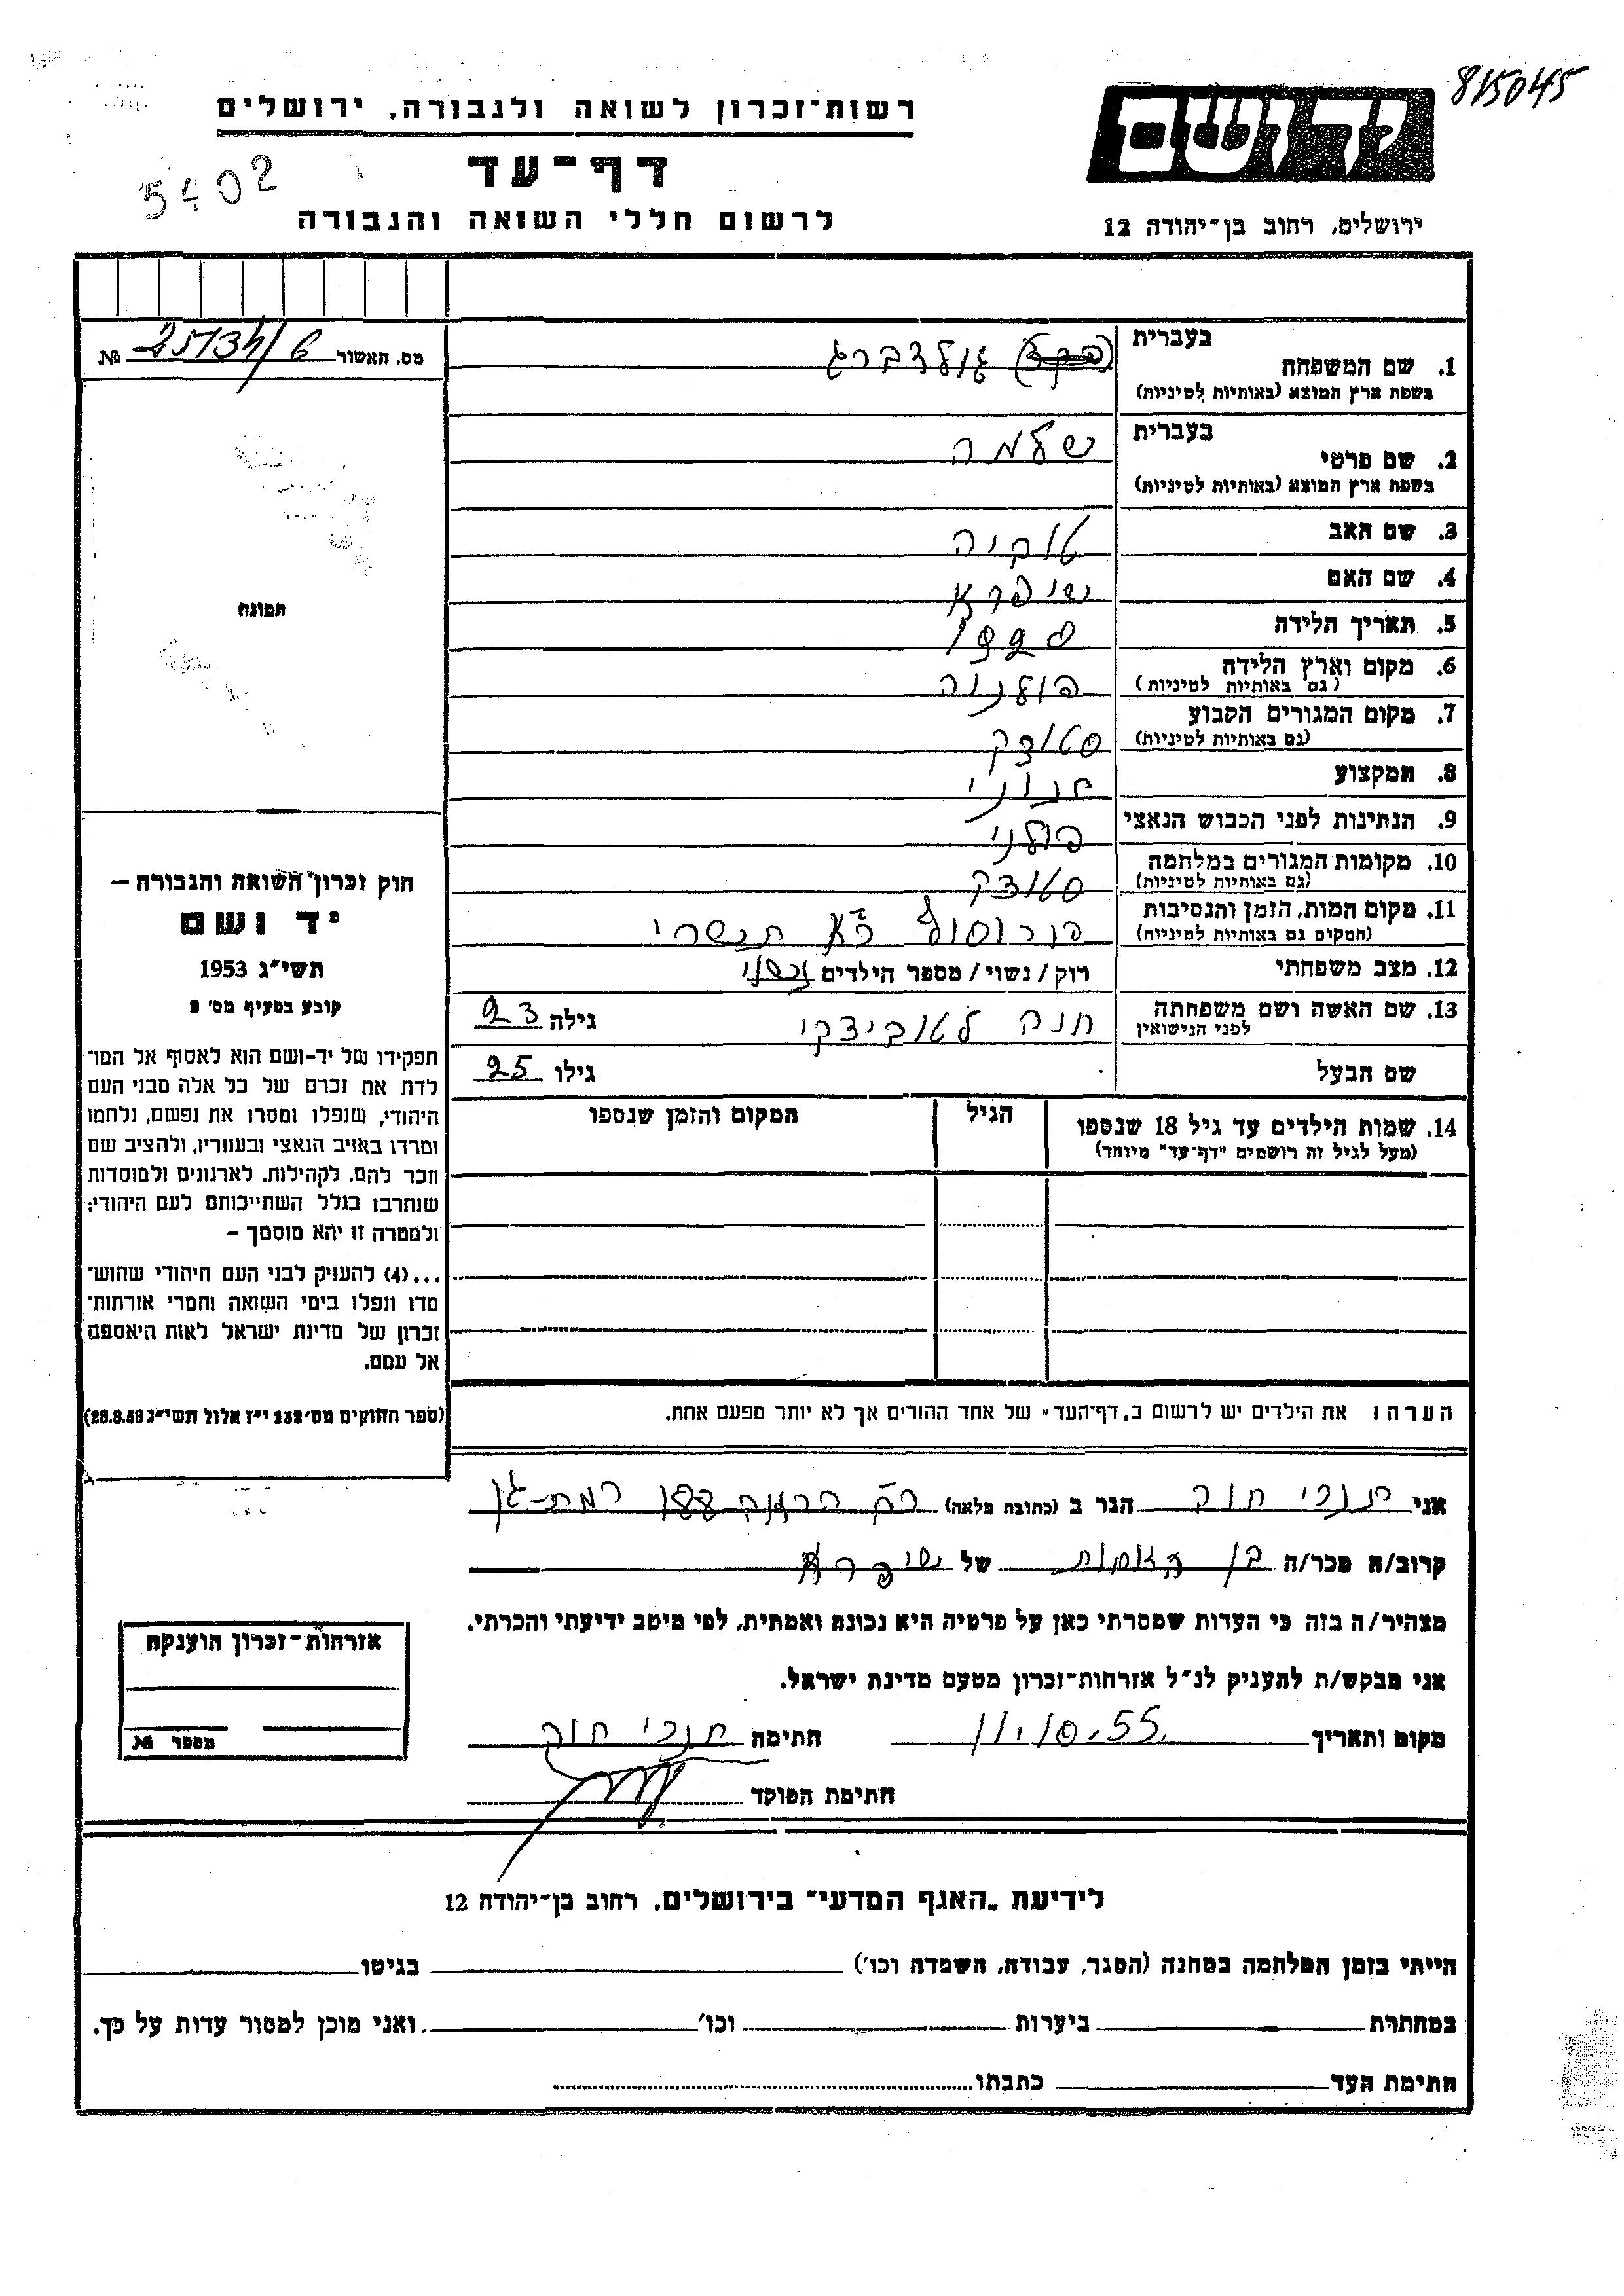 8/15045
יד ושם
רשות-זכרון לשואה ולגבורה, ירושלים
דף-עד
5402
לרשום חללי השואה והגבורה
ירושלים, רחוב בן-יהודה 12
מס. האשור 25134/6 №
תמונה
בעברית
1. שם המשפחה גולדברג
בשפת ארץ המוצא (באותיות לטיניות)
בעברית
2. שם פרטי שלמה
בשפת ארץ המוצא (באותיות לטיניות)
3. שם האב טוביה
4. שם האם שיפרא
5. תאריך הלידה
6. מקום וארץ הלידה פולניה
(גם באותיות לטיניות)
7. מקום המגורים הקבוע סטוצק
(גם באותיות לטיניות)
8. המקצוע חנוני
9. הנתינות לפני הכבוש הנאצי פולני
10. מקומות המגורים במלחמה סטוצק
(גם באותיות לטיניות)
11. מקום המות, הזמן והנסיבות תשרי
(המקום גם באותיות לטיניות)
12. מצב משפחתי רוק/נשוי/מספר הילדים
13. שם האשה ושם משפחתה חנה גילה 23
לפני הנישואין
שם הבעל גילו 25
14. שמות הילדים עד גיל 18 שנספו הגיל המקום והזמן שנספו
(מעל לגיל זה רושמים "דף-עד" מיוחד)
הערה: את הילדים יש לרשום ב„דף-העד" של אחד ההורים אך לא יותר מפעם אחת.
חוק זכרון השואה והגבורה —
יד ושם
תשי"ג 1953
קובע בסעיף מס' 2
תפקידו של יד-ושם הוא לאסוף אל המו־
לדת את זכרם של כל אלה מבני העם
היהודי, שנפלו ומסרו את נפשם, נלחמו
ומרדו באויב הנאצי ובעוזריו, ולהציב שם
וזכר להם, לקהילות, לארגונים ולמוסדות
שנחרבו בגלל השתייכותם לעם היהודי;
ולמטרה זו יהא מוסמך —
...(4) להעניק לבני העם היהודי שהוש־
מדו ונפלו בימי השואה והמרי אזרחות־
זכרון של מדינת ישראל לאות היאספם
אל עמם.
(ספר החוקים מס' 132 י"ז אלול תשי"ג 28.8.53)
אני הגר ב (כתובת מלאה) הראה 188 רמת-גן
קרוב/ה מכר/ה בן של שיפרא
מצהיר/ה בזה כי העדות שמסרתי כאן על פרטיה היא נכונה ואמתית, לפי מיטב ידיעתי והכרתי.
אני מבקש/ת להעניק לנ"ל אזרחות-זכרון מטעם מדינת ישראל.
מקום ותאריך 11.10.55 חתימה
חתימת הפוקד
אזרחות-זכרון הוענקה
מספר №
לידיעת „האגף המדעי" בירושלים, רחוב בן-יהודה 12
הייתי בזמן המלחמה במחנה (הסגר, עבודה, השמדה וכו') בגיטו
במחתרת ביערות וכו' ואני מוכן למסור עדות על כך.
חתימת העד כתבתו